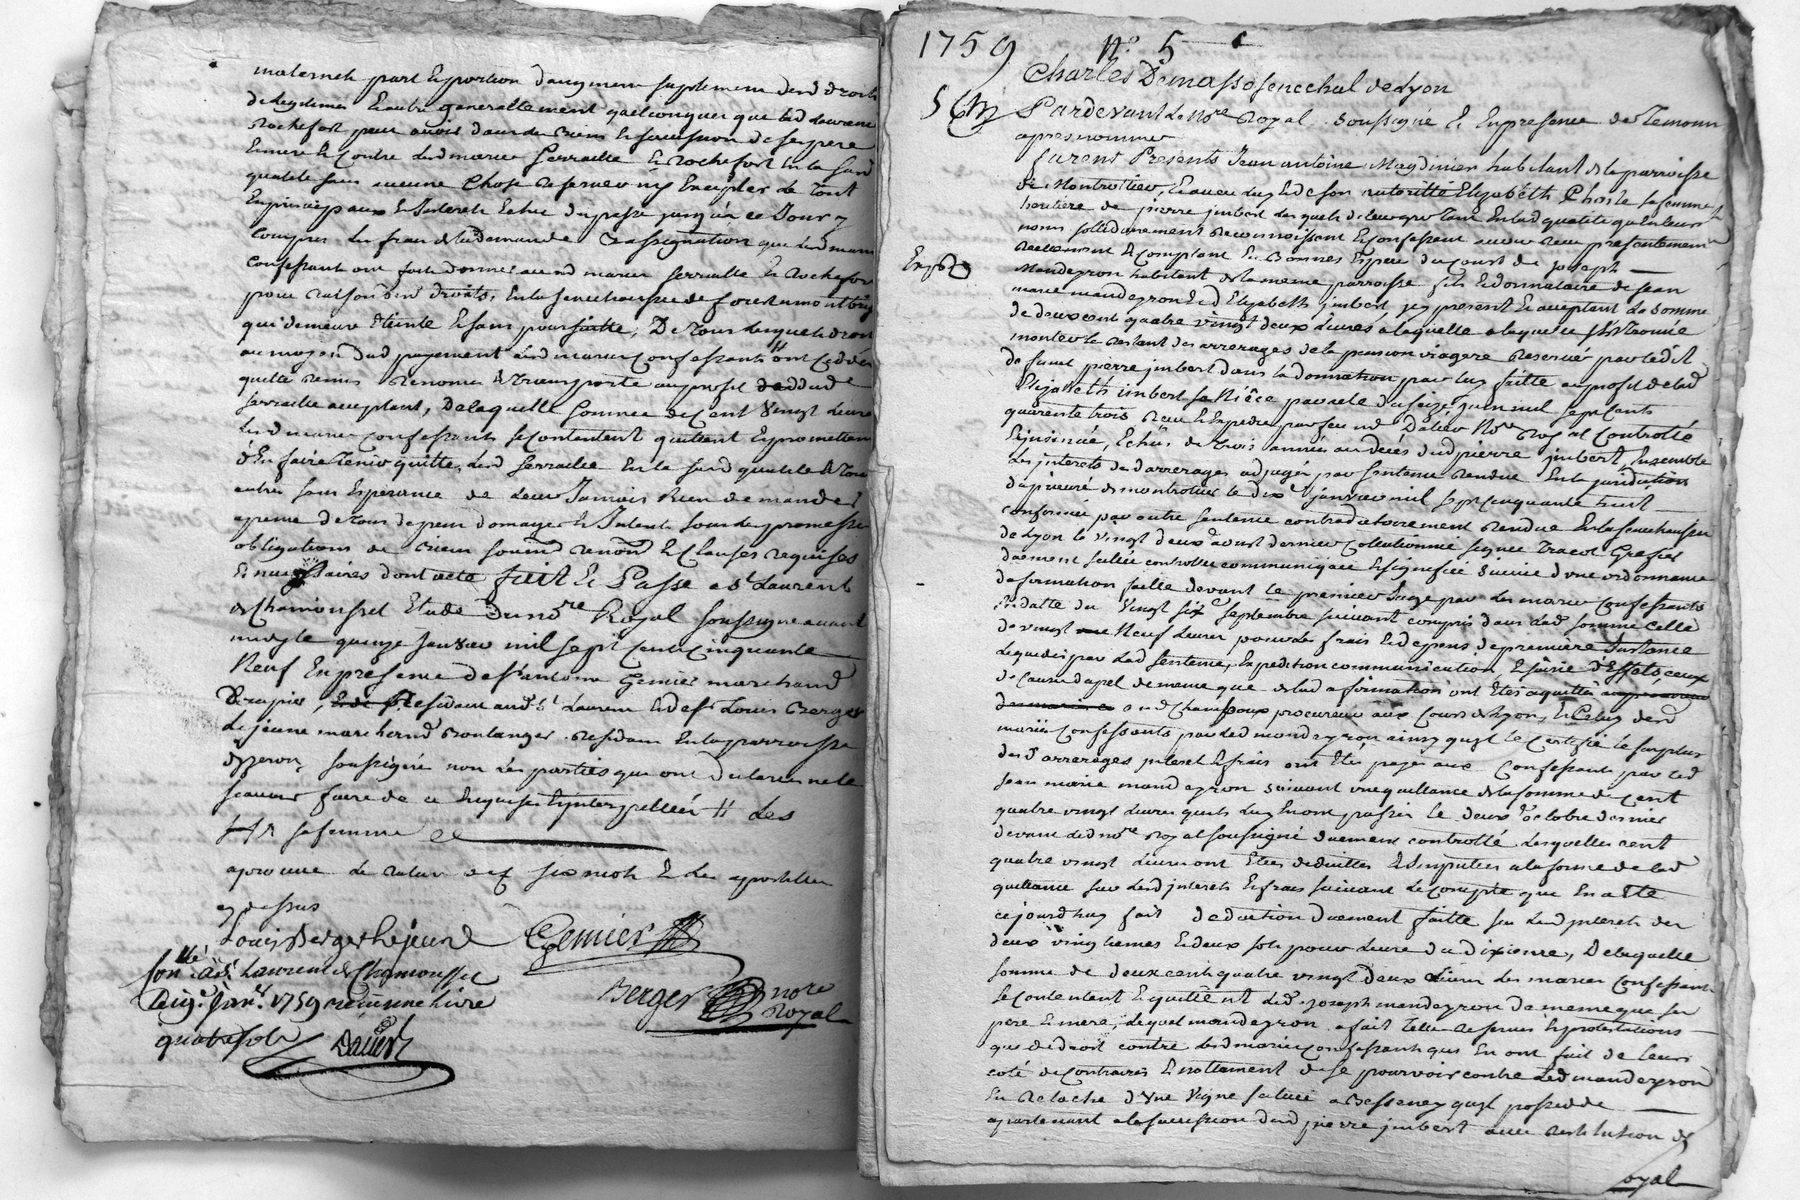 maternels part et portion d'augment suplement desd droits
de legitimes et autre generallement quelconques que lad Laurence
Rochefort peut avoir dans les Biens et succession de ses pere
et mere et contre lesd mariés et Rochefort en la susd
qualité sans aucune chose se reserver ny Exepter le tout
En principaux et Interets Echus du passé jusqu'à ce Jour y
compris les frais de la demande et assignation que lesd mariés
confessants ont fait donner auxd mariés et Rochefort
pour raison desd droits, En la senechaussée de
qui demeure éteinte et sans poursuitte, De tous lesquels droits
au moyen dud payement lesd mariés confessants ont ceddé
quitté remis renoncé et transporté au profit dud
acceptant, De laquelle somme de cent vingt livres
lesd mariés confessants se contentent quittent Et promettent
d'En faire tenir quitte, led En la susd qualité et tous
autres sans Esperance de leur Jamais Rien demander à
peine de tous depens domages et Interets sous les promesses
obligations de biens soumd renond et Clauses requises
Et necessaires dont acte fait et Passé a St Laurent
de Chamousset Etude dud nore Royal soussigné avant
midy le quinze Janvier mil sept cents cinquante
Neuf En presence de sr antoine Gemier marchand
Drapier, Residant aud St Laurent et de sr Louis Berger
le jeune marchand Boulanger Residant En la parroisse
d'yzeron, soussignés non les parties qui ont declaré ne le
scavoir faire de ce Enquises et interpellées H Les
sa femme
aprouvé la rature de six mots et les apostilles
cy dessus
Louis Berger Le jeune Gemier
Conllé a St Laurent de Chamousset
le 15e janv. 1759 reçu une livre
quatre sols
Berger nore
Royal
1759 No 5
Charles Demasso senechal de Lyon
5 Pardevant Le Nore Royal soussigné Et En presence des Temoins
apres nommés
furent Presents Jean antoine Magdinier habitant de la parroisse
de Montrottier, Et avec luy et de son autorité Elizabeth sa femme
heritiere de pierre imbert lesquels de leur gré tant En lad qualité qu'En leurs
noms sollidairement Reconnoissent Et confessent avoir Reçu presentement
Reellement et Comptant En Bonnes Especes du Cours de joseph
Mandeyron habitant de la meme parroisse fils et donnataire de jean
marie mandeyron et d Elizabeth imbert icy present Et acceptant La somme
de deux cent quatre vingt deux Livres a laquelle a laquelle
monter le restant des arrerages de la pension viagere Reservée par led
defunt pierre imbert dans la donnation par luy faitte au profit de lad
Elizabeth imbert sa Niéce par acte du seize juin mil sept cents
quarente trois Reçu Et Expedié par feu me Dalier Nore Royal Controllé
Et insinué, Echus de trois années au décés dud pierre imbert, Ensemble
des interets desd arrerages adjugés par sentence rendue En la juridiction
du prieuré de montrottier le dix janvier mil sept cinquante huit
confirmée par autre sentence contradictoirement rendue En la senechaussée
de Lyon le vingt deux aoust dernier collationnée signée Tracol Greffier
duement scellée controllée communiquée Et signefiée suivie d'une ordonnance
d'afirmation faitte devant le premier Juge par les mariés confessants
En datte du vingt six septembre suivant compris dans lad somme celle
de vingt Neuf Livres pour les frais et depens de premiere Instance
Liquidés par lad sentence, Expedition communication Et saisie d'Effets, ceux
de Cause d'apel de meme que de lad afirmation ont Etés aquittés
a me Chamboux procureur aux Cours de Lyon, et Celuy desd
mariés confessants par led mandeyron ainsy qu'il le Certifie le surplus
desd arrerages interet Et frais ont Etés payés aux Confessants par led
jean marie mandeyron suivant une quittance de la somme de Cent
quatre vingt Livres qu'ils luy En ont passée le deux octobre dernier
devant led nore Royal soussigné duement controllé lesquelles cent
quatre vingt Livres ont Etés deduittes Et imputées a la forme de lad
quittance sur lesd interets Et frais suivant le Compte que En a Eté
cejourd'huy fait deduction duement faitte sur lesd interets des
deux vingtiemes Et deux sols pour Livre du dixieme, De laquelle
somme de deux cent quatre vingt deux Livres les mariés Confessants
se contentent Et quittent led joseph mandeyron de meme que ses
pere et mere, lequel mandeyron a fait telles Reserves Et protestations
que de droit contre lesd mariés confessants qui En ont fait de leurs
coté de contraires Et nottament de se pourvoir contre led mandeyron
En relache d'une vigne située a Bessenay qu'il possedde
apartenant a la succession dud pierre imbert avec restitution de
Royal